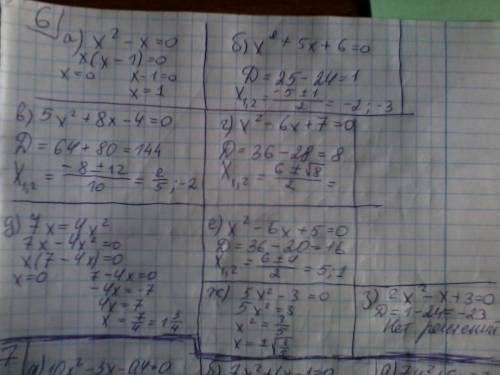 6
а) x² - x = 0
x(x - 1) = 0
x = 0 x - 1 = 0
x = 1
б) x² + 5x + 6 = 0
D = 25 - 24 = 1
X₁,₂ = (-5 ± 1)/2 = -2; -3
в) 5x² + 8x - 4 = 0
D = 64 + 80 = 144
X₁,₂ = (-8 ± 12)/10 = 2/5; -2
г) x² - 6x + 7 = 0
D = 36 - 28 = 8
X₁,₂ = (6 ± √8)/2 =
д) 7x = 4x²
7x - 4x² = 0
x(7 - 4x) = 0
x = 0 7 - 4x = 0
-4x = -7
4x = 7
x = 7/4 = 1 3/4
е) x² - 6x + 5 = 0
D = 36 - 20 = 16
X₁,₂ = (6 ± 4)/2 = 5; 1
ж) 5x² - 3 = 0
5x² = 3
x² = 3/5
x = ±√(3/5)
з) 2x² - x + 3 = 0
D = 1 - 24 = -23
Нет решений
7